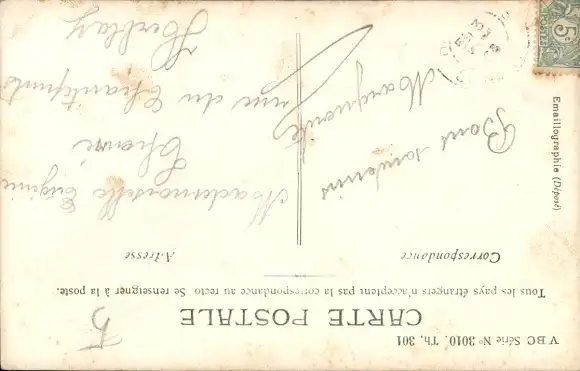 VBC Série Nº 3010. Th, 301
CARTE POSTALE
Tous les pays étrangers n'acceptent pas la correspondance au recto. Se renseigner à la poste.
Correspondance
Adresse
Bons souvenirs
Marguerite
Mademoiselle Eugénie
rue du
Herblay
5
Emaillographie (Déposé)
5
POSTES